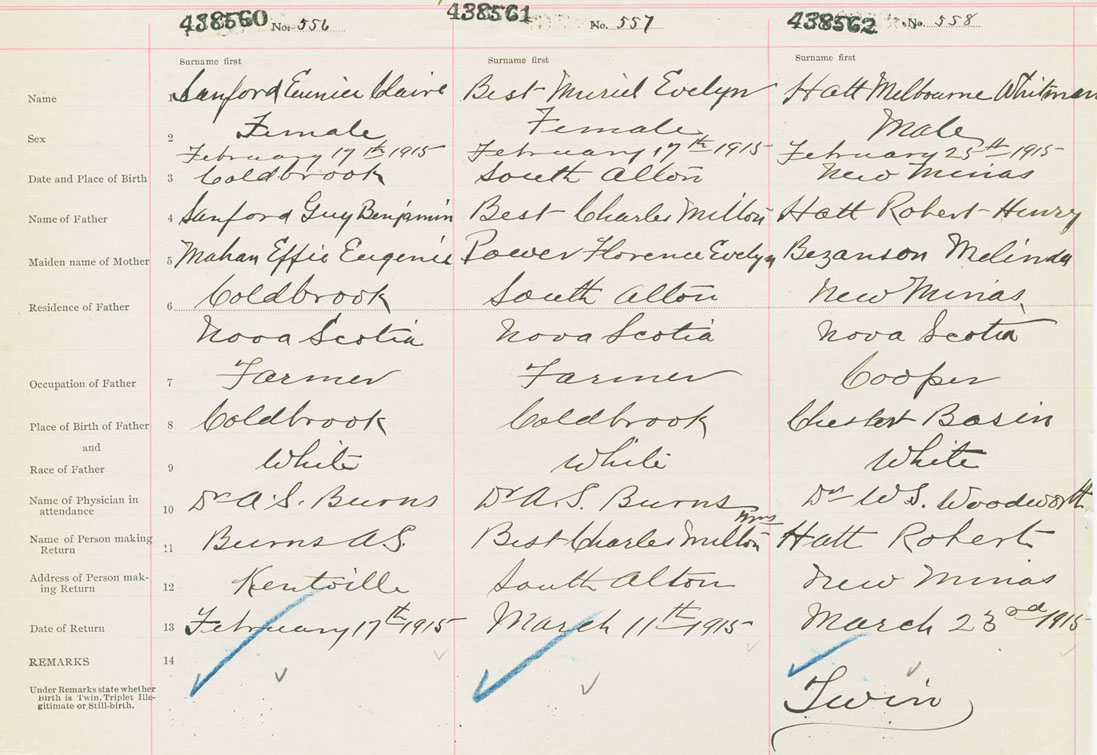 438560 No. 556 438561 No. 557 438562 No. 558
Surname first Surname first Surname first
Name 1 Sanford Eunice Claire Best Muriel Evelyn Hatt Melbourne Whitman
Sex 2 Female Female Male
February 17th 1915 February 17th 1915 February 25th 1915
Date and Place of Birth 3 Coldbrook South Alton New Minas
Name of Father 4 Sanford Guy Benjamin Best Charles Milton Hatt Robert Henry
Maiden name of Mother 5 Mahan Effie Eugenie Power Florence Evelyn Bezanson Melinda
Residence of Father 6 Coldbrook South Alton New Minas
Nova Scotia Nova Scotia Nova Scotia
Occupation of Father 7 Farmer Farmer Cooper
Place of Birth of Father 8 Coldbrook Coldbrook Chester Basin
and
Race of Father 9 White White White
Name of Physician in
attendance 10 Dr A. S. Burns Dr A. S. Burns Dr W S. Woodworth
Name of Person making
Return 11 Burns A S. Best Charles Milton Mrs Hatt Robert
Address of Person mak-
ing Return 12 Kentville South Alton New Minas
Date of Return 13 February 17th 1915 March 11th 1915 March 23rd 1915
REMARKS 14
Under Remarks state whether
Birth is Twin, Triplet Ille-
gitimate or Still-birth.
Twin